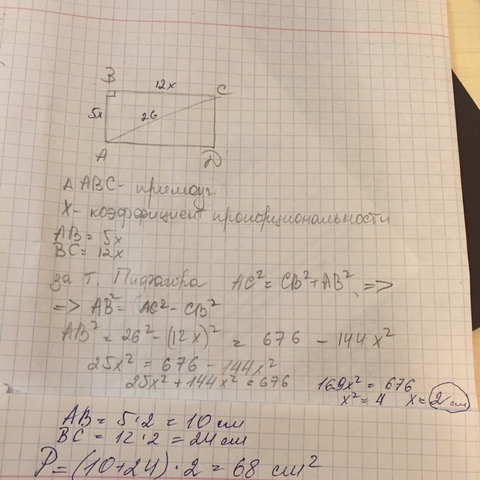 B 12x C
5x 26
A D
Δ ABC - прямоуг.
X - коэффициент пропорциональности
AB = 5x
BC = 12x
за т. Пифагора AC² = CB² + AB², =>
=> AB² = AC² - CB²
AB² = 26² - (12x)² = 676 - 144x²
25x² = 676 - 144x²
25x² + 144x² = 676 169x² = 676
x² = 4 x = 2 см
AB = 5·2 = 10 см
BC = 12·2 = 24 см
P = (10+24)·2 = 68 см²